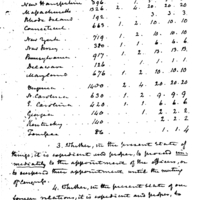 New Hampshire 396 1. 2. 4. 4. 4.
Massachusetts 1326 6. 4. 20. 20. 20
Rhode Island 192 1. . 3. 3. 3
Connecticut 668 1. 2. 10. 10. 10.
New York 719 1. 2. 10. 10. 10.
New Jersey 380 1. 1. 6. 6. 5.
Pennsylvania 977 1. 2. 13. 13. 13
Delaware 136 . . 1. 2. 2.
Maryland 676 1. 2. 10. 10. 10
Virginia 1400 2. 4. 20. 20. 20
N. Carolina 630 1. 2. 9. 9. 9.
S. Carolina 420 . 1. 6. 6. 6
Georgia 140 1. 2. 2. 2.
Kentucky 140 1. 2. 2. 2.
Tennessee 86 . . 1. 1. 4
3. Whether, in the present state of
things, it is expedient and proper, to proceed im
mediately to the appointment of the officers, or
to suspend their appointment until the meeting
of Congress.
4. Whether, in the present state of our
foreign relations, it is expedient and proper, to